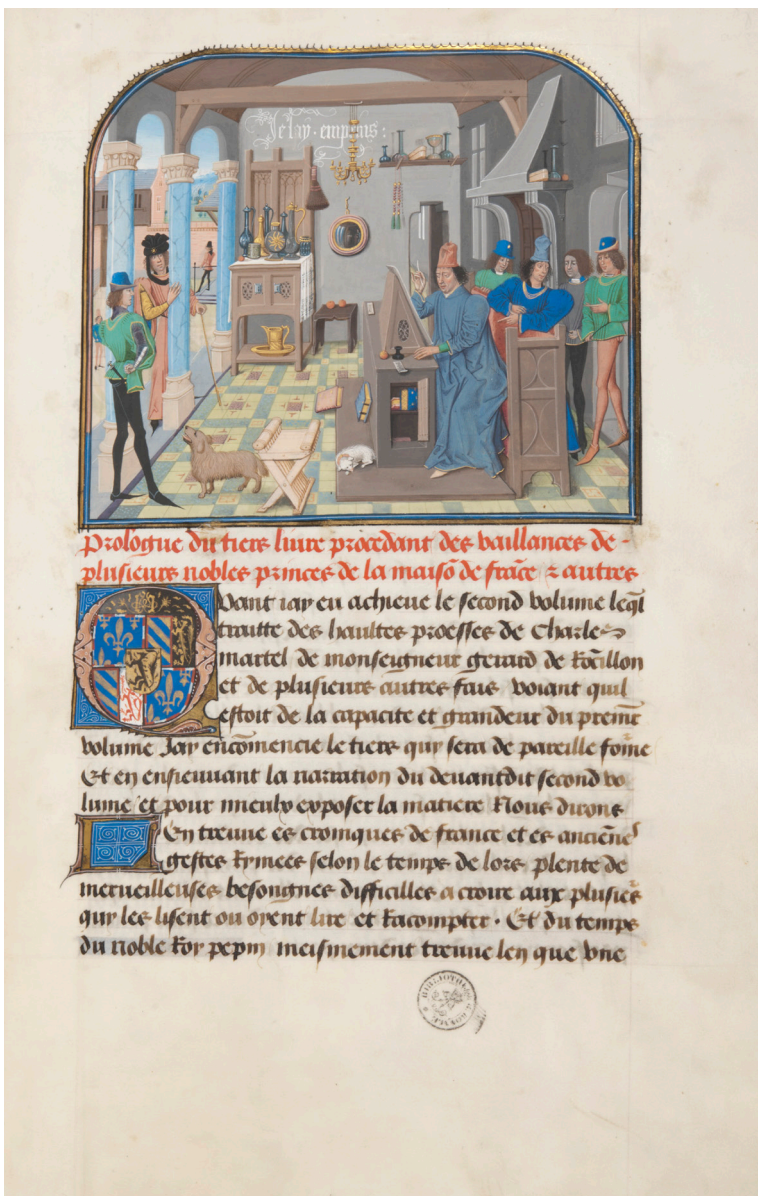 Je lay · emprins :
Prologue du tiers livre procedant des vaillances de -
plusieurs nobles princes de la maisõ de frãce ⁊ autres
Quant iay eu achieue le second volume leq̃l
traitte des haultes proesses de Charles
martel de monseigneur gerard de Roũillon
et de plusieurs autres fais voiant quil
estoit de la capacite et grandeur du premir̃
volume Jay encõmencie le tiers qui sera de pareille forme
Et en ensieuuant la narration du deuantdit second vo
lume et pour mieulx exposer la matiere Nous dirons
En treuue es croniques de france et es anciẽnes
gestes Rymees selon le temps de lors plente de
merueilleuses besongnes difficilles a croire aux plusieĩs
qui les lisent ou oyent lire et Racompter · Et du temps
du noble Roy pepin meismement treuue len que vne